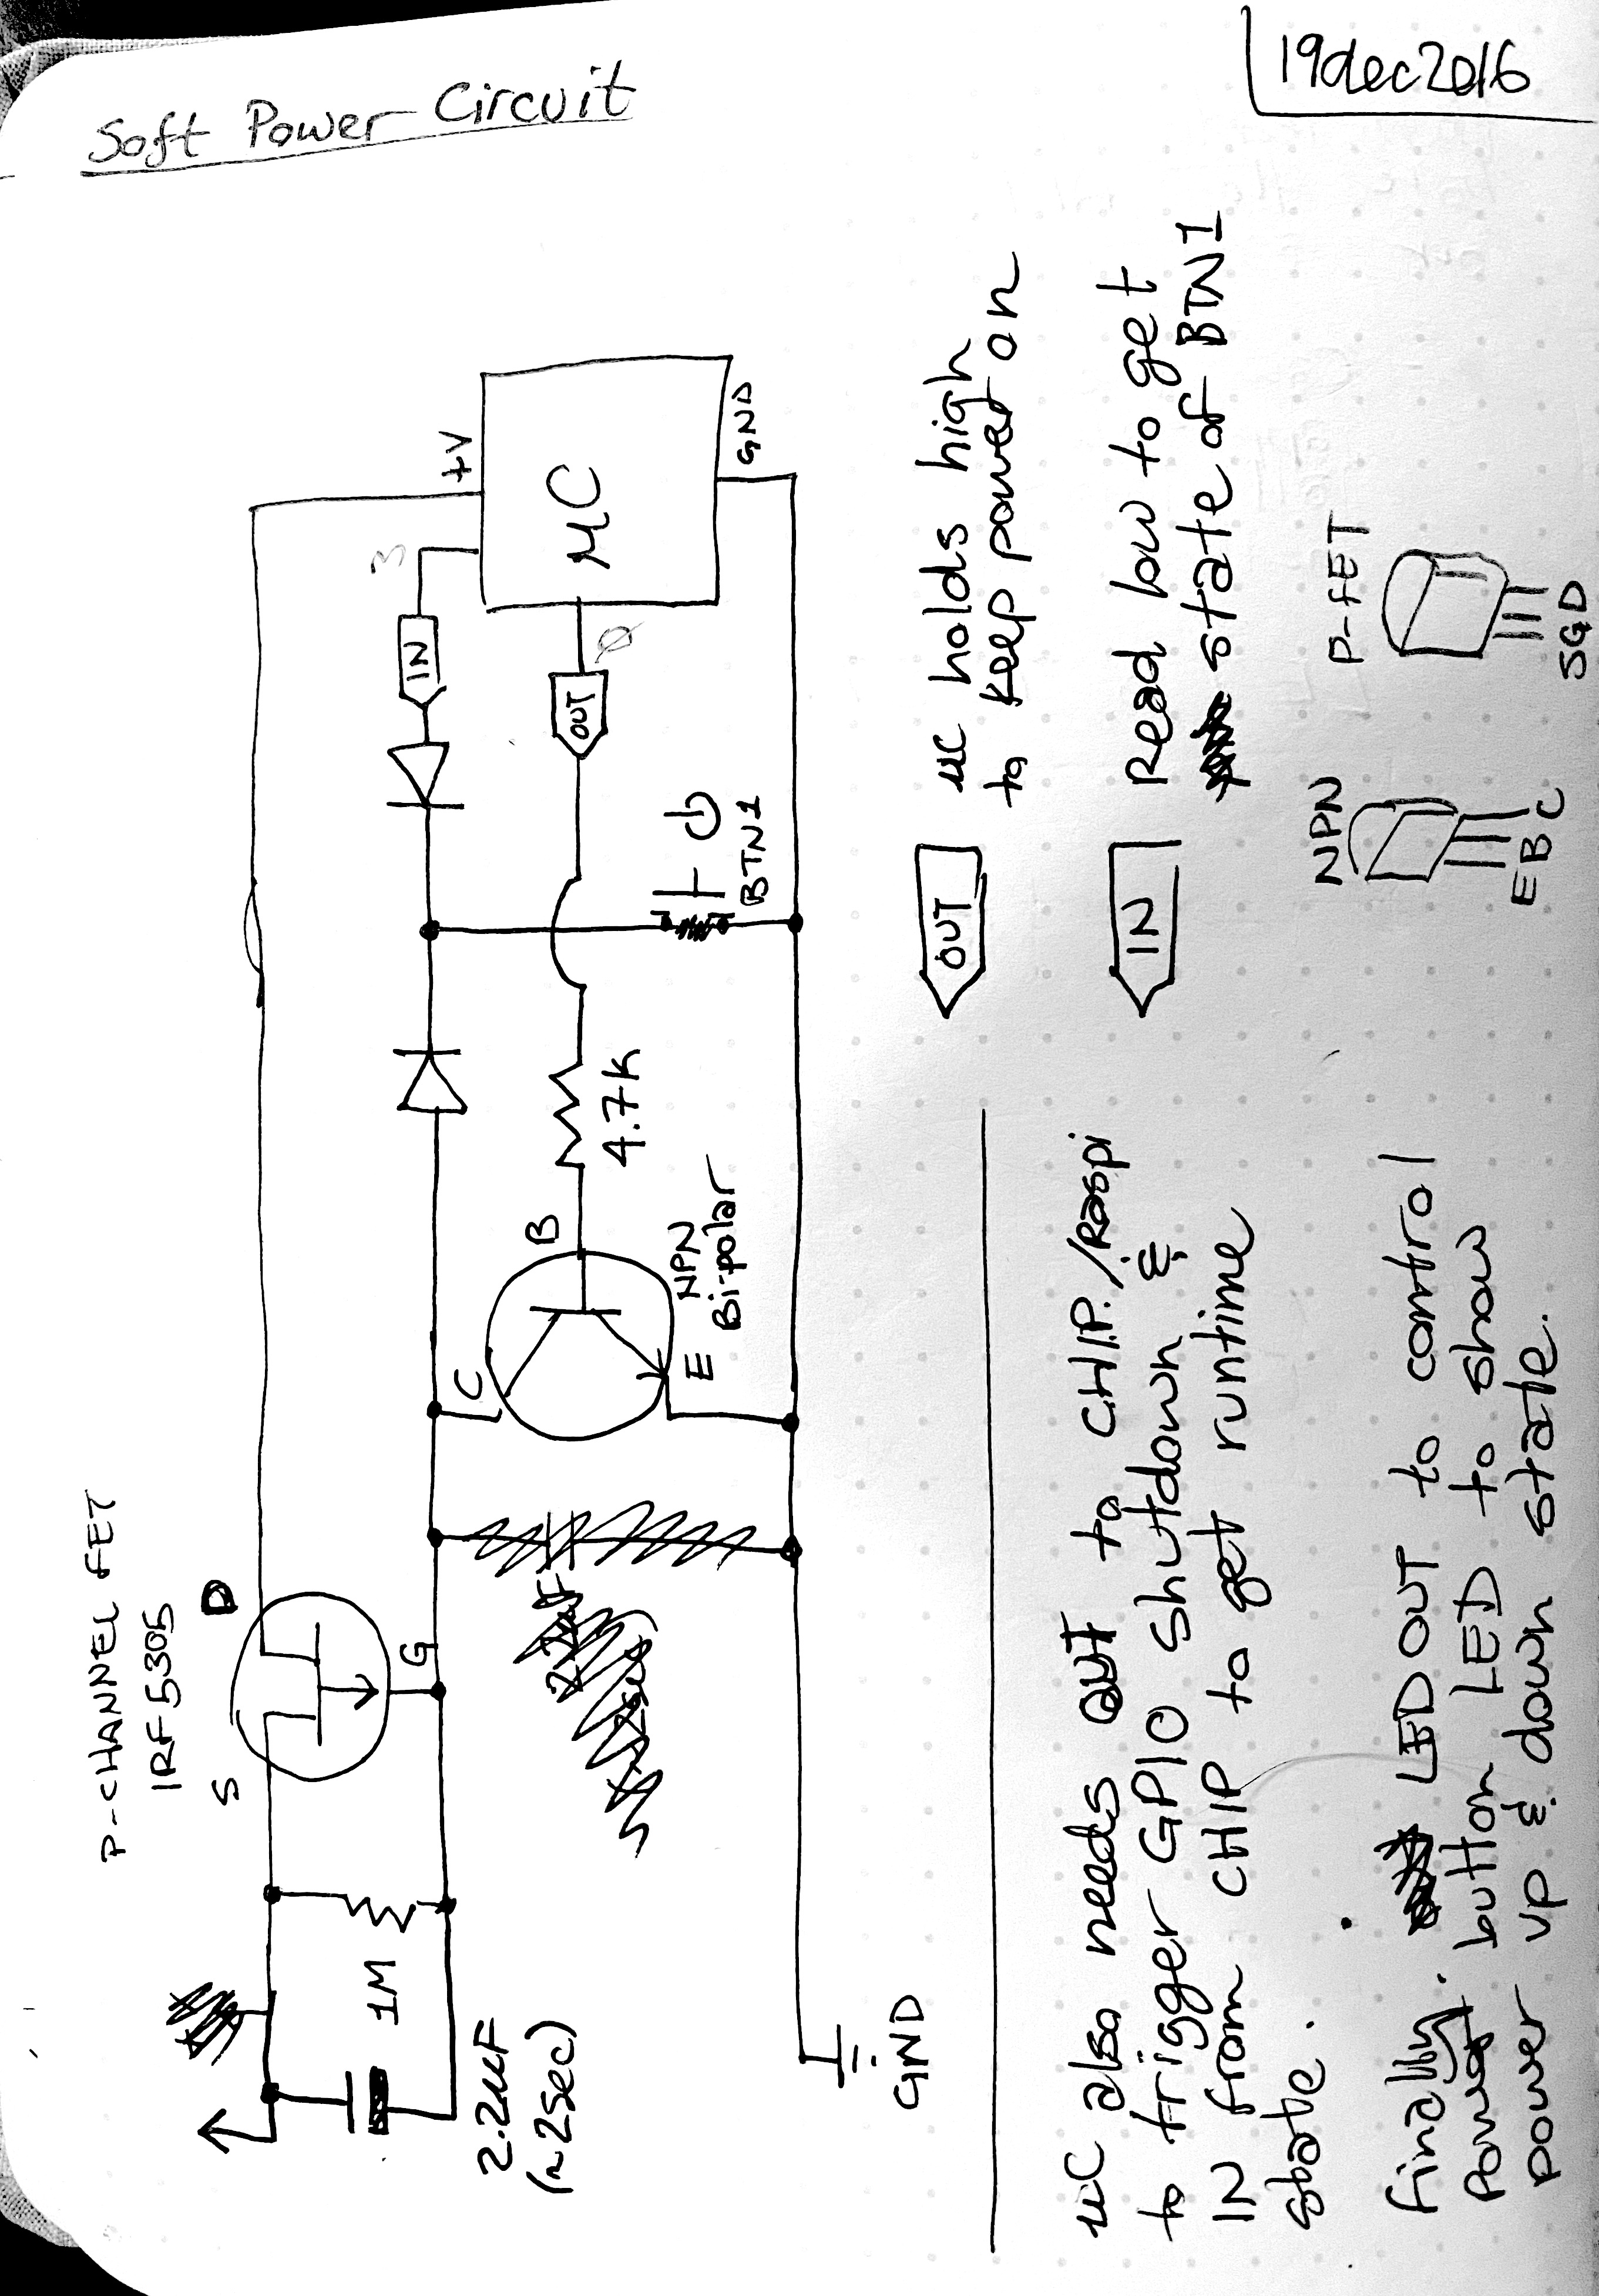 Soft Power Circuit
19dec2016
P-CHANNEL FET
IRF5305
S
D
G
1M
2.2uF
(~2sec)
C
B
E
NPN
Bi-polar
4.7k
IN
3
OUT
Ø
+V
µC
GND
BTN1
GND
OUT
uC holds high
to keep power on
IN
Read low to get
state of BTN1
NPN
E B C
P-FET
SGD
uC also needs OUT to CHIP/Raspi
to trigger GPIO shutdown &
IN from CHIP to get runtime
state.
Finally. LED OUT to control
power button LED to show
power up & down state.